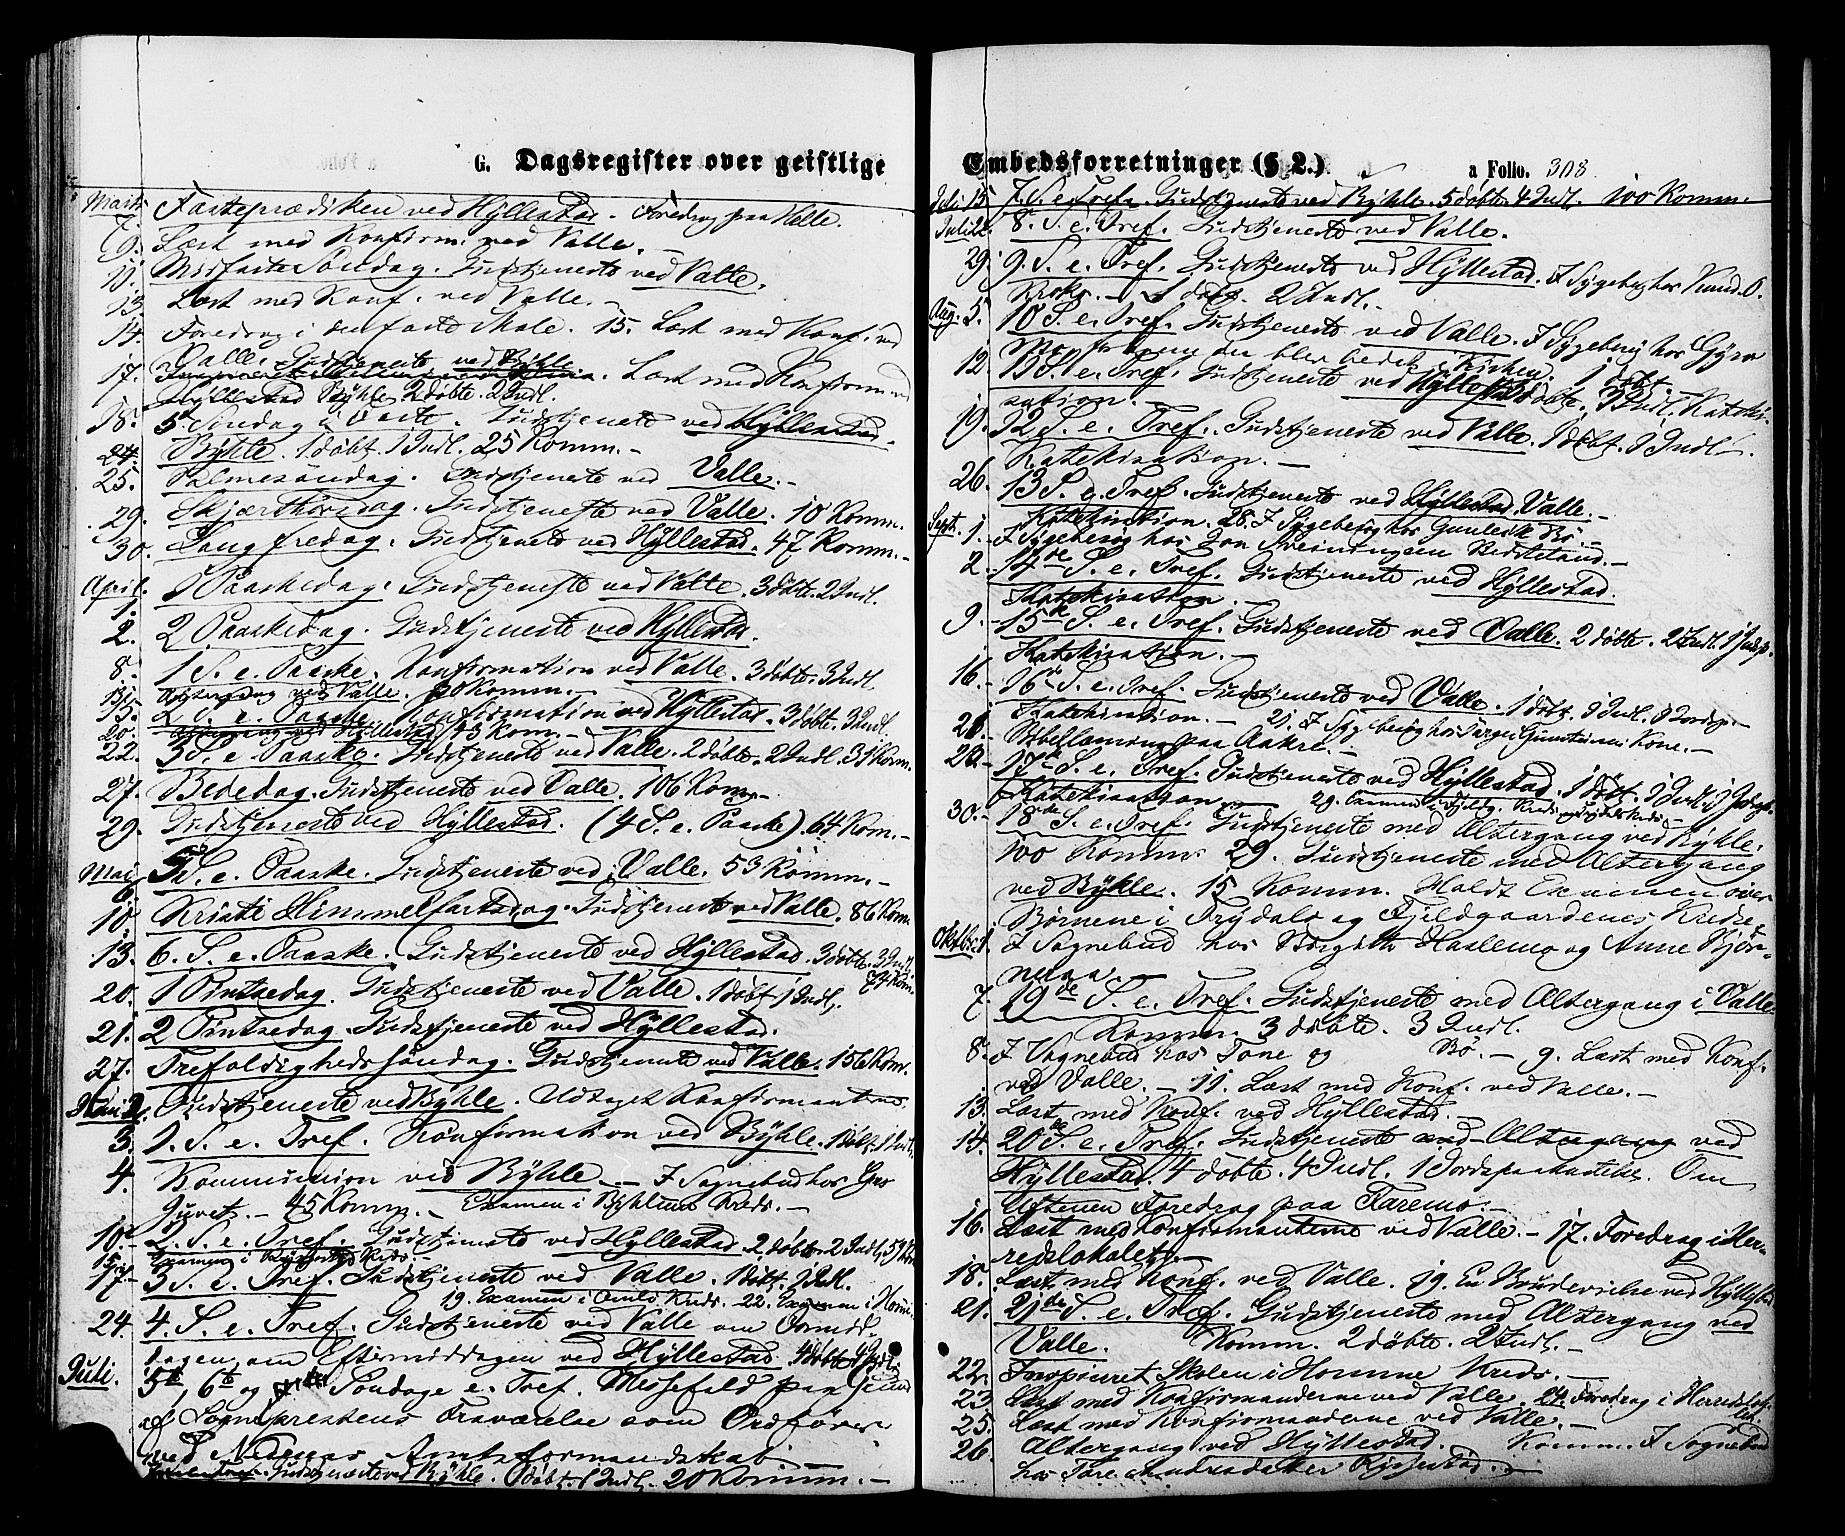 G. Dagsregister over geistlige
Marts 7. Fasteprædiken ved Hyllestad. Foredrag paa Valle.
9. Læst med Konfirm. ved Valle.
11. Midfaste Søndag. Gudstjeneste ved Valle.
13. Læst med Konf. ved Valle.
14. Foredrag i den faste Skole. 15. Læst med Konf. ved
Valle. Gudstjeneste ved Bykle
17. Læst med Konfirm. ved
Hyllestad Bykle 2 døbte. 2 Indl.
18. 5te Søndag i Faste. Gudstjeneste ved Hyllestad.
24. Bykle. 1 døbt. 1 Indl. 25 Komm.
25. Palmesøndag. Gudstjeneste ved Valle.
29. Skjærthorsdag. Gudstjeneste ved Valle. 10 Komm.
30. Langfredag. Gudstjeneste ved Hyllestad. 47 Komm.
April. 1. 1 Paaskedag. Gudstjeneste ved Valle. 3 døbte. 2 Indl.
2. 2 Paaskedag. Gudstjeneste ved Hyllestad.
8. 1 S. e. Paaske. Konfirmation ved Valle. 3 døbte. 3 Indl.
ved Valle. Komm.
15. 2 S. e. Paaske. Konfirmation ved Hyllestad. 3 døbte. 3 Indl.
20. ved Hyllestad 43 Kom.
22. 3 S. e. Paaske. Gudstjeneste ved Valle. 2 døbte. 2 Indl. 31 Kom.
27. Bededag. Gudstjeneste ved Valle. 106 Kom.
29. Gudstjeneste ved Hyllestad. (4 S. e. Paaske). 64 Kom.
Maj 6. 5 S. e. Paaske. Gudstjeneste ved Valle. 53 Komm.
10. Kristi Himmelfartsdag. Gudstjeneste ved Valle. 86 Kom.
13. 6. S. e. Paaske. Gudstjeneste ved Hyllestad. 3 døbte. 3 Indl.
74 Kom.
20. 1 Pintsedag. Gudstjeneste ved Valle. 1 døbt. 1 Indl.
21. 2 Pintsedag. Gudstjeneste ved Hyllestad.
27. Trefoldighedssøndag. Gudstjeneste ved Valle. 156 Kom.
Juni 2. Gudstjeneste ved Bykle. Udspk. Konfirmanterne.
3. 1. S. e. Tref. Konfirmation ved Bykle. 1 døbt. 1 Indl.
4. Kommunion ved Bykle. I Sognebud hos Gro
Juvet. 45 Komm. Examen i Byklum Kreds.
10. 2. S. e. Tref. Gudstjeneste ved Hyllestad. 2 døbte. 2 Indl. 59 Kom
15. Examen i Kreds.
17. 3 S. e. Tref. Gudstjeneste ved Valle. 1 døbt. 1 Indl.
19. Examen i Kreds. 22. Examen i Homme
24. 4. S. e. Tref. Gudstjeneste ved Valle om Formid-
dagen, om Eftermiddagen ved Hyllestad. 4 døbte. 4 Indl.
Juli. 5te, 6te og 7de Søndage e. Tref. Messefald paa Grund
af Sognepræstens Fraværelse som Ordfører
ved Nedenæs Amtsformandskab.
Gudstjeneste ved Bykle. 1 døbt. 1 Indl. 20 Komm.
Embedsforretninger (§ 2.) a Folio. 308
Juli 15. 7. S. e. Tref. Gudstjeneste ved Bykle. 5 døbte. 4 Indl. 100 Komm.
Juli 22. 8. S. e. Tref. Gudstjeneste ved Valle.
29. 9. S. e. Tref. Gudstjeneste ved Hyllestad. I Sygebesøg hos Knud O.
1 døbt. 2 Indl.
Aug. 5. 10 S. e. Tref. Gudstjeneste ved Valle. I Sygebesøg hos Gyro
der blev bedet i Kirken. 1 døbt.
12. 11 S. e. Tref. Gudstjeneste ved Hyllestad. døbte. Indl. Kateki-
sation.
19. 12 S. e. Tref. Gudstjeneste ved Valle. 1 døbt. 1 Indl.
Katekisation.
26. 13 S. e. Tref. Gudstjeneste ved Hyllestad Valle.
Katekisation. 28. I Sygebesøg hos Gunleik Bø.
Sept. 1. I Sygebesøg hos Jon
2. 14de S. e. Tref. Gudstjeneste ved Hyllestad.
Katekisation.
9. 15de S. e. Tref. Gudstjeneste ved Valle. 2 døbte. 2 Indl. 1 Jordsp.
Katekisation.
16. 16de S. e. Tref. Gudstjeneste ved Valle. 1 døbt. 1 Indl. 1 Jordsp.
Katekisation. 21. I Sygebesøg hos Kone.
21. Bibellæsning paa Aakre.
17de S. e. Tref. Gudstjeneste ved Hyllestad. 1 døbt. 1 Indl. 1 Jordsp.
Katekisation. 29. Examen i Kreds
30. 18de S. e. Tref. Gudstjeneste med Altergang ved Bykle.
100 Komm. 29. Gudstjeneste med Altergang
ved Bykle. 15 Komm. Holdt Examen over
Børnene i Trydals og Fjeldgaardenes Kredse
Oktbr. 1. I Sognebud hos Borgith Haslemo og Anne Bjør-
neraa.
7. 19de S. e. Tref. Gudstjeneste med Altergang i Valle.
Komm. 3 døbte. 3 Indl.
8. I Sognebud hos Tone og Bø. 9. Læst med Konf.
ved Valle. 11. Læst med Konf. ved Valle.
13. Læst med Konf. ved Hyllestad.
14. 20de S. e. Tref. Gudstjeneste med Altergang ved
Hyllestad. 4 døbte. 4 Indl. 1 Jordspaakastelse. Om
Aftenen Foredrag paa Faremo.
16. Læst med Konfirmanterne ved Valle. 17. Foredrag i Her-
redslokalet.
18. Læst med Konf. ved Valle. 19. En Brudevielse ved Hyllestad
21. 21de S. e. Tref. Gudstjeneste med Altergang ved
Valle. Komm. 2 døbte. 2 Indl.
22. Inspiceret Skolen i Homme Kreds.
23. Læst med Konfirmanderne ved Valle. 24. Foredrag i Herredslok-
alet.
25. Læst med Konfirmanderne ved Valle.
26. Altergang ved Hyllestad. Komm. I Sognebud
hos Tore Andresdatter Rysstad.